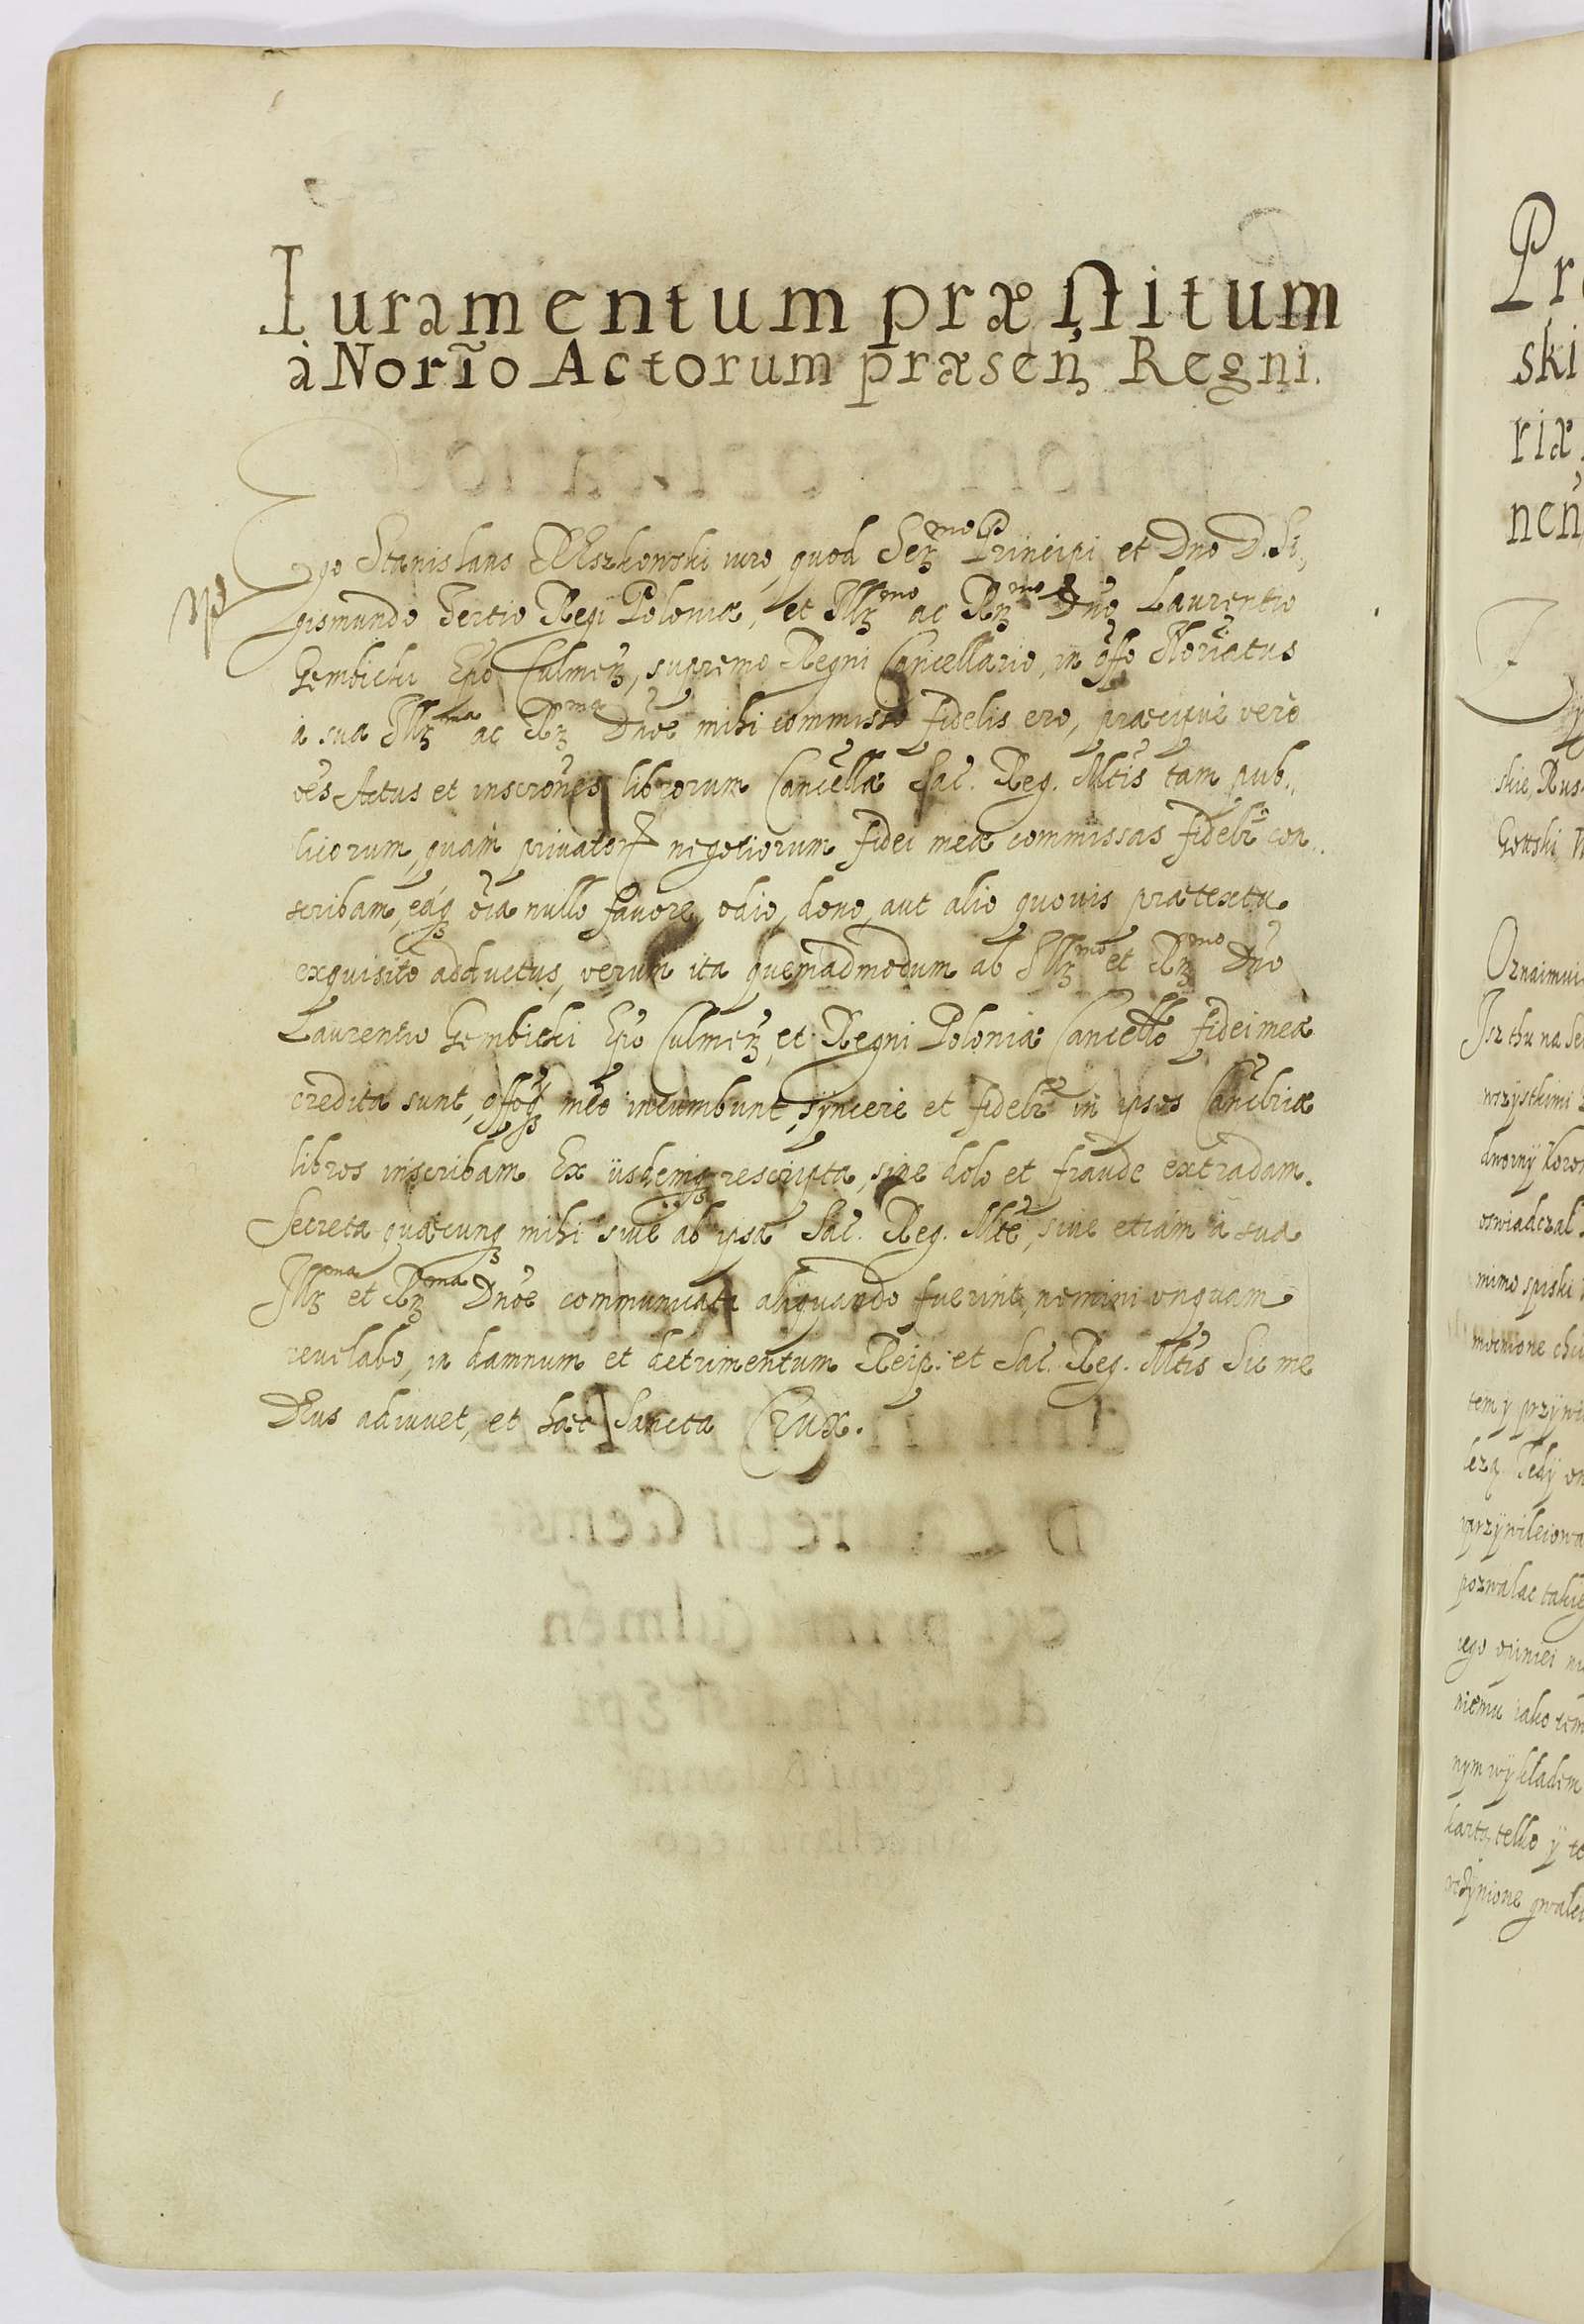 Iuramentum præstitum
à Norĩo Actorum præsenꝫ Regni.
Ego Stanislaus REszkowski iuro, quod Serꝫmo Principi et Dno D. Si„
gismundo Tertio Regi Poloniæ, et Illꝫmo ac Rꝫmo Dnõ Laurentio
Gembicki Epõ Culmenꝫ, supremo Regni Cancellario, in offo Noriatus
a sua Illꝫma ac Rꝫma Dnõe mihi commisso fidelis ero, præcipuè verò
oẽs Actus et inscrõnes librorum Cancellæ Sac. Reg. Mtis tam pub„
licorum, quàm privatorꝝ negotiorum fidei meæ commissas fidelr con„
scribam, eáqꝫ oĩa nullo favore, odio, dono, aut alio quovis prætextu
exquisito adductus, verum ita quemadmodum ab Illꝫmo et Rꝫmo Dnõ
Laurentio Gembicki Epõ Culmenꝫ, et Regni Poloniæ Cancello fidei meæ
credita sunt, offoqꝫ meo incumbunt, syncere et fidelr in ipsos Cancriæ
libros inscribam Ex iisdemqꝫ rescripta, sine dolo et fraude extradam.
Secreta quæcunqꝫ mihi siue ab ipsa Sac. Reg. Mte, siue etiam à sua
Illꝫma et Rꝫma Dnõe communicata aliquando fuerint, nemini unquam
reuelabo, in damnum et detrimentum Reip: et Sac. Reg. Mtis Sic me
DEus adiuvet, et hæc Sancta Crux.
Pr
ski
riæ
nen
skie, Rus
Gotski
Oznaimui
Isz thu na
wszystkimi
dworny koron
oswiadczal
mimo spiski
tem y przywi
ego opiniei
niemu iako tem
nym wykladem